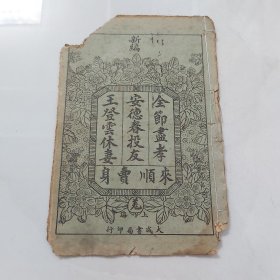 新編
全節盡孝
安德眷投友
王登雲休妻
來順賣身
上海
大成書局印行